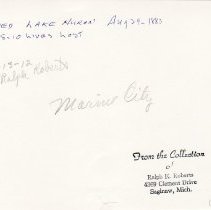 LAKE HURON Aug 29-1885
LIVES LOST
13-12
Ralph Roberts
Marine City
From the Collection
of
Ralph K. Roberts
4369 Clement Drive
Saginaw, Mich.